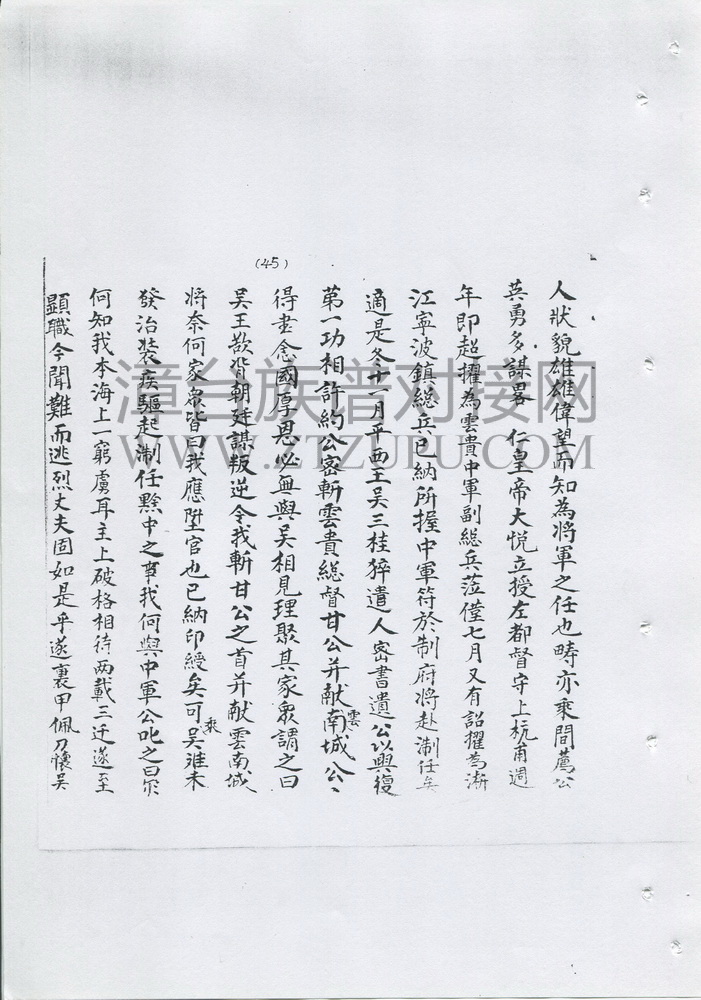 (45)
人狀貌雄雄偉望而知為將軍之任也畴亦乘間薦公
英勇多謀畧 仁皇帝大悅立授左都督守上杭甫週
年即超擢為雲貴中軍副總兵蒞僅七月又有詔擢為淅
江寧波鎮総兵已納所握中軍符於制府將赴淛任矣
適是冬十一月平西王吳三桂猝遣人密書遺公以興復
第一功相許約公密斬雲貴總督甘公并献雲南城公〻
得書念國厚恩必無與吳相見理聚其家衆謂之曰
吳王欲背朝廷謀叛逆令我斬甘公之首并献雲南城
將奈何家衆皆曰我應陞官也已納印綬矣可乘吳淮未
發治装疾驅起淛任黔中之事我何與中軍公叱之曰尔
何知我本海上一窮虜耳主上破格相待两載三迁遂至
顯職今聞難而逃烈丈夫固如是乎遂裹甲佩刀懷吳
漳台族谱对接网
WWW.ZTZUPU.COM